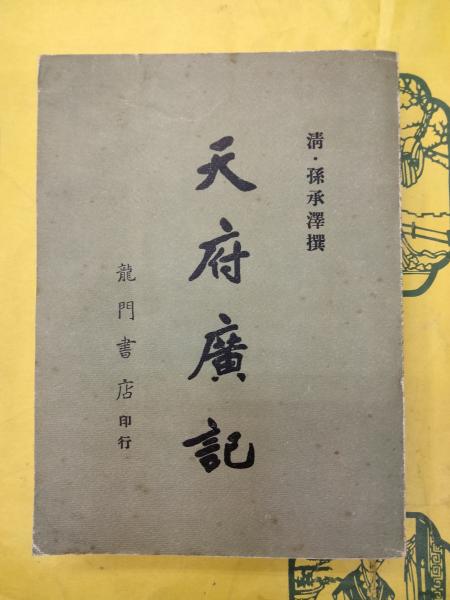 清·孫承澤撰
天府廣記
龍門書店印行